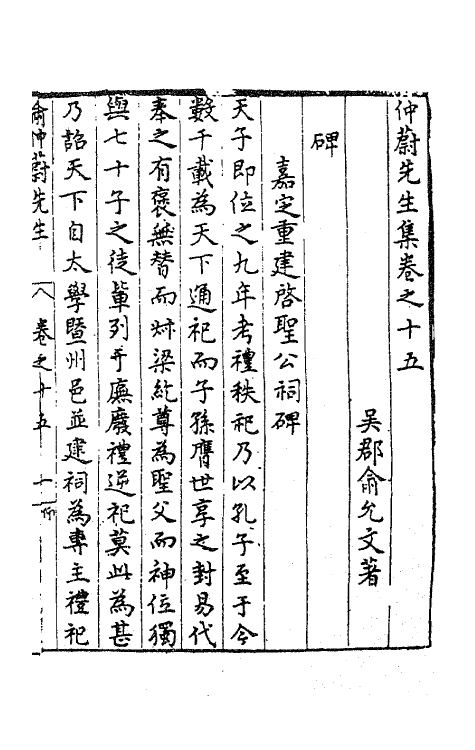 仲蔚先生集卷之十五
吳郡俞允文著
碑
嘉定重建啓聖公祠碑
天子即位之九年考禮秩祀乃以孔子至于今
數千載為天下通祀而子孫膺世享之封易代
奉之有褒無替而叔梁紇尊為聖父而神位獨
與七十子之徒輩列于廡廢禮逆祀莫此為甚
乃詔天下自太學暨州邑並建祠為專主禮祀
俞仲蔚先生 卷之十五 十一